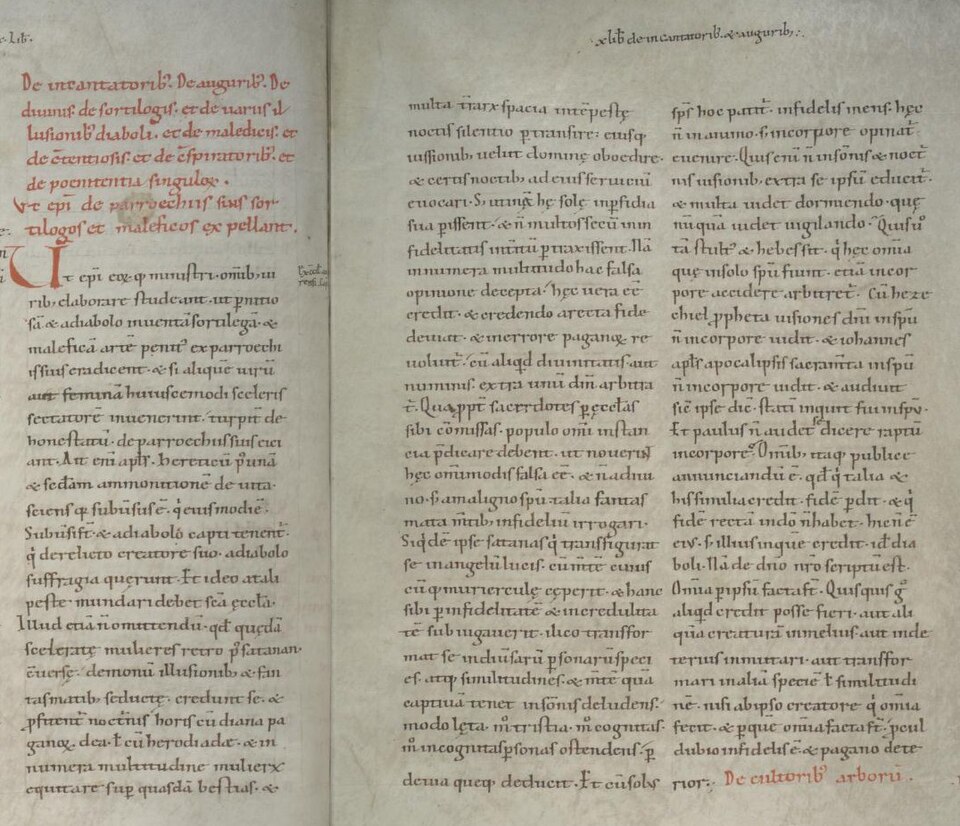 e. Lib̄.
De incantatorib;. De augurib;. De
diuinis. de sortilogis. et de uariis il
lusionib; diaboli. et de maledicis. et
de c̄tentiosis. et de c̄spiratorib;. et
de poenitentia singuloꝝ.
Vt ep̄i de parroechiis suis sor
tilogos et maleficos expellant.
Ut ep̄i eoꝝq; ministri. omib; ui
rib; elaborare studeant. ut p̄nitio
sā & a diabolo inuentā sortilegā. &
maleficā artē penit᷒ ex parroechi
is suis eradicent. & si alique uirū
aut feminā huiuscemodi sceleris
sectatorē inuenerint. turpit̄ de
honestatū. de parroechiis suis eici
ant. Ait eni apl̄s. hereticū p᷒ unā
& sedam ammonitionē deuita.
sciens q; subuersus ē. q̇ eiusmodi ē.
Subuersi sī̄t. & a diabolo capti tenent᷑.
q̇ derelicto creatore suo. a diabolo
suffragia querunt. Et ideo a tali
peste mundari debet sc̄a ęccl̄a.
Illud etiā n̄ omittendū. qd̄ quędā
sceleratę mulieres retro p᷒ satanan
c̄uersę. demonū illusionib; & fan
tasmatib; seductę. credunt se. &
p̄fitent᷑ nocturnis horis cū diana pa
ganoꝝ dea. ł cū herodiade. & in
numera multitudine mulierꝝ
equitare sup̄ quasdā bestias. &
x lib̄ de incantatorib;. & augurib;.
multa terrarꝝ spacia intempestę
noctis silentio p̄transire. eiusq;
iussionib; uelut dominę oboedire.
& certis noctib; ad eius seruiciū
euocari. S; utinā hę solę in p̄fidia
sua p̄issent. & n̄ multos secū in in
fidelitatis interitū p̄traxissent. Nā
innumera multitudo hac falsa
opinione decepta. hęc uera eē
credit. & credendo a recta fide
deuiat. & in errore paganoꝝ re
uoluit᷑. cū aliqd diuinitatis aut
numinis. extra unū dm̄ arbitra
t᷑. Qua ppt̄ sacerdotes p̄ ęccl̄as
sibi cōmissas. populo omi instan
cia p̄dicare debent. ut nouerint
hęc omimodis falsa eē. & n̄ a diui
no. s; a maligno sp̄u. talia fantas
mata mtib; infideliū irrogari.
Siq̇dē ipse satanas q̇ transfigurat
se in angelū lucis. cū mtē cuius
cū q; mulierculę cęperit. & hanc
sibi p̄ infidelitatē & incredulita
tē subiugauerit. ilico transfor
mat se in diuersarū p̄sonarū speci
es. atq; similitudines. & mtē quā
captiuā tenet in sōnis deludens.
modo lęta. m̊ tristia. m̊ cognitas.
m̊ incognitas p̄sonas ostendens. p̄
deuia queq; deducit. Et cū solus
sp̄s hoc patit᷑. infidelis mens. hęc
n̄ in animo. s; in corpore opinat᷑
euenire. Quis eni n̄ in sōnis & noct᷑
nis uisionib; extra se ipsū educit᷑.
& multa uidet dormiendo. quę
nūquā uidet uigilando. Quis ū̊
tā stult᷒ & hebes sit. q̇ hęc omia
quę in solo sp̄u fiunt. etiā in cor
pore accidere arbitret᷑. Cū heze
chiel ppheta uisiones dn̄i in sp̄u
n̄ in corpore uidit. & iohannes
apl̄s apocalipsis sacramta in sp̄u
n̄ in corpore uidit. & audiuit
sic̄ ipse dic̄. statī inquit fui in sp̄u.
Et paulus n̄ audet se dicere raptū
in corpore. Omib; itaq; publice
annunciandū ē. qd̄ q̇ talia &
his similia credit. fidē p̄dit. & q̇
fidē rectā in dō n̄ habet. hic n̄ ē
eius. s; illius in quē credit. id ē dia
boli. Nā de dn̄o nr̄o scriptū est.
Omia p̄ ipsū facta sī̄t. Quisquis g̊
aliqd credit posse fieri. aut ali
quā creaturā in melius. aut in de
terius inmutari. aut transfor
mari in aliā speciē ł similitudi
nē. nisi ab ipso creatore q̇ omia
fecit. & p̄ quē omia facta sī̄t. pcul
dubio infidelis ē. & pagano dete
rior. De cultorib; arborū.